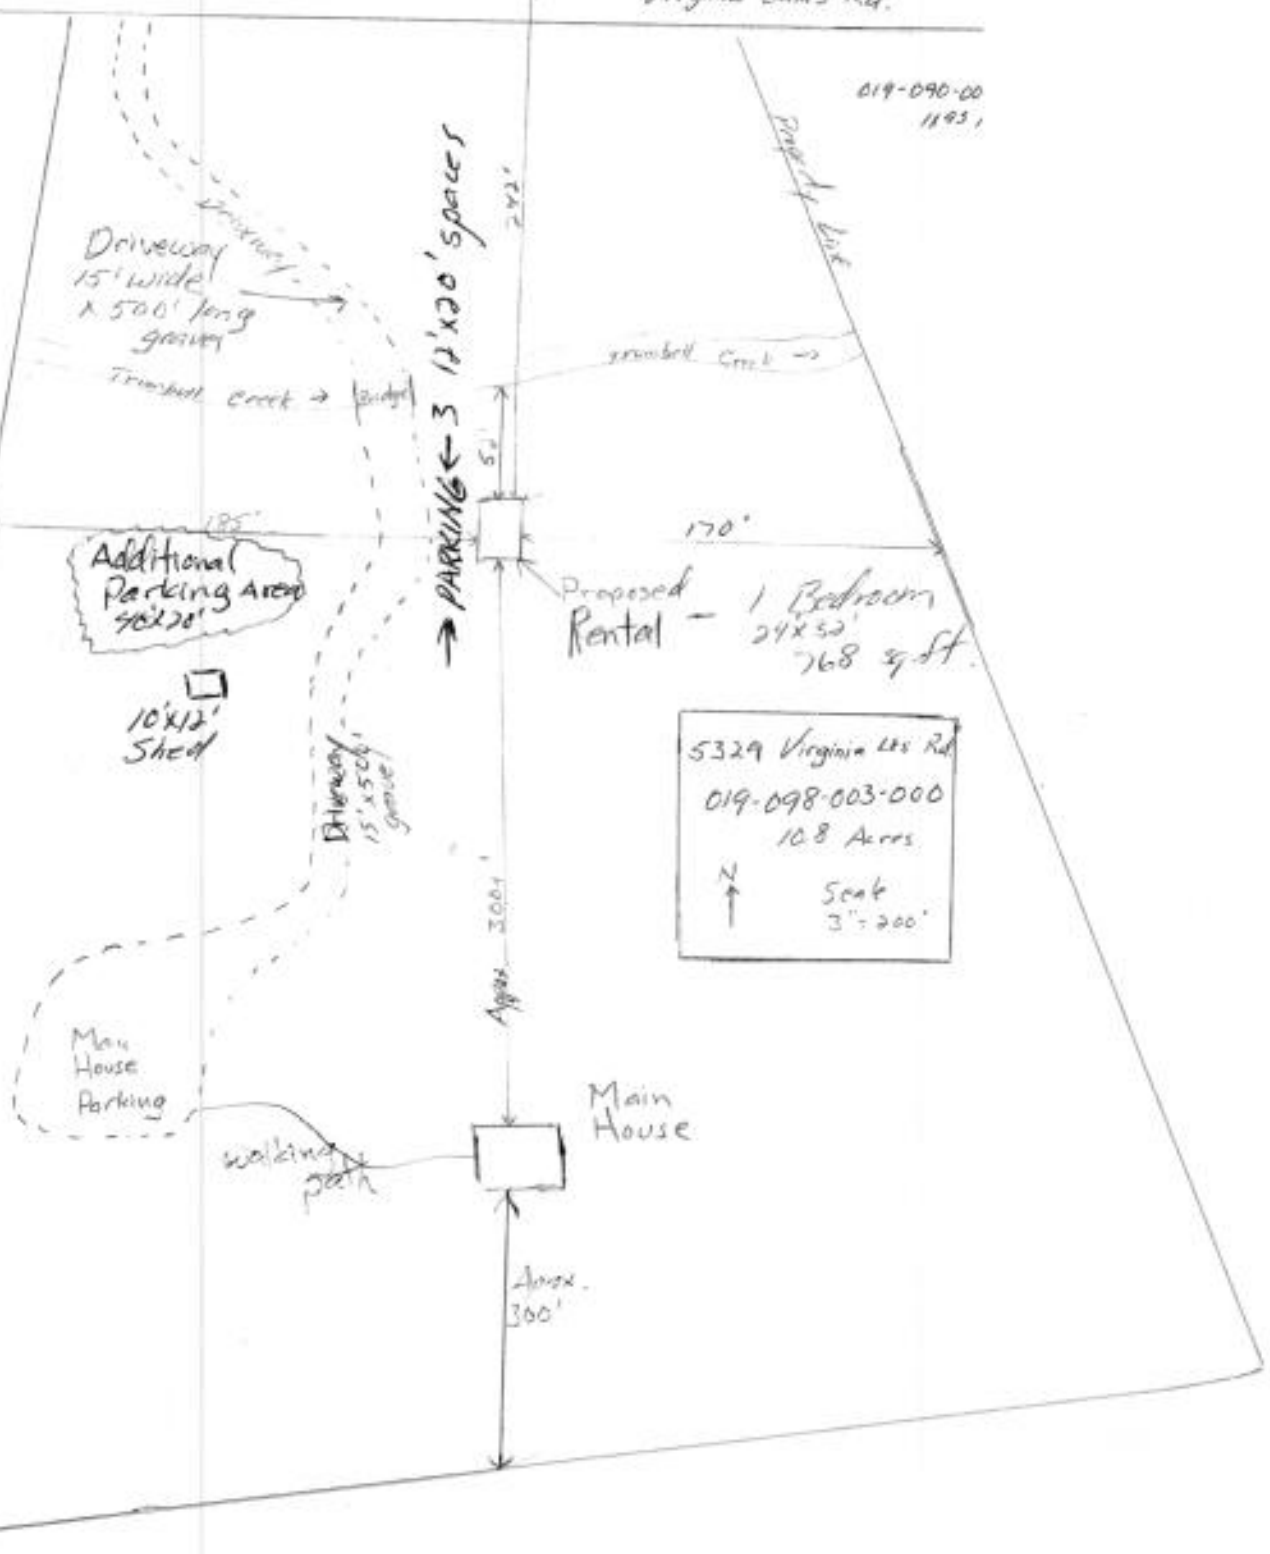 Rd.
019-090-00
Property Line
242'
Driveway
Driveway
15' wide
x 500' long
gravel
→ PARKING ← 3 12'x20' spaces
Trumbull Creek →
Bridge
Trumbull Creek →
52'
185'
170'
Additional
Parking Area
40'x20'
Proposed
Rental - 1 Bedroom
24 x 32'
768 sq.ft.
10'x12'
Shed
Driveway
15' x 500'
gravel
5329 Virginia Lks Rd
019-098-003-000
10.8 Acres
N
Scale
3"=200'
Appx. 300'
Main
House
Parking
walking
path
Main
House
Appx.
300'